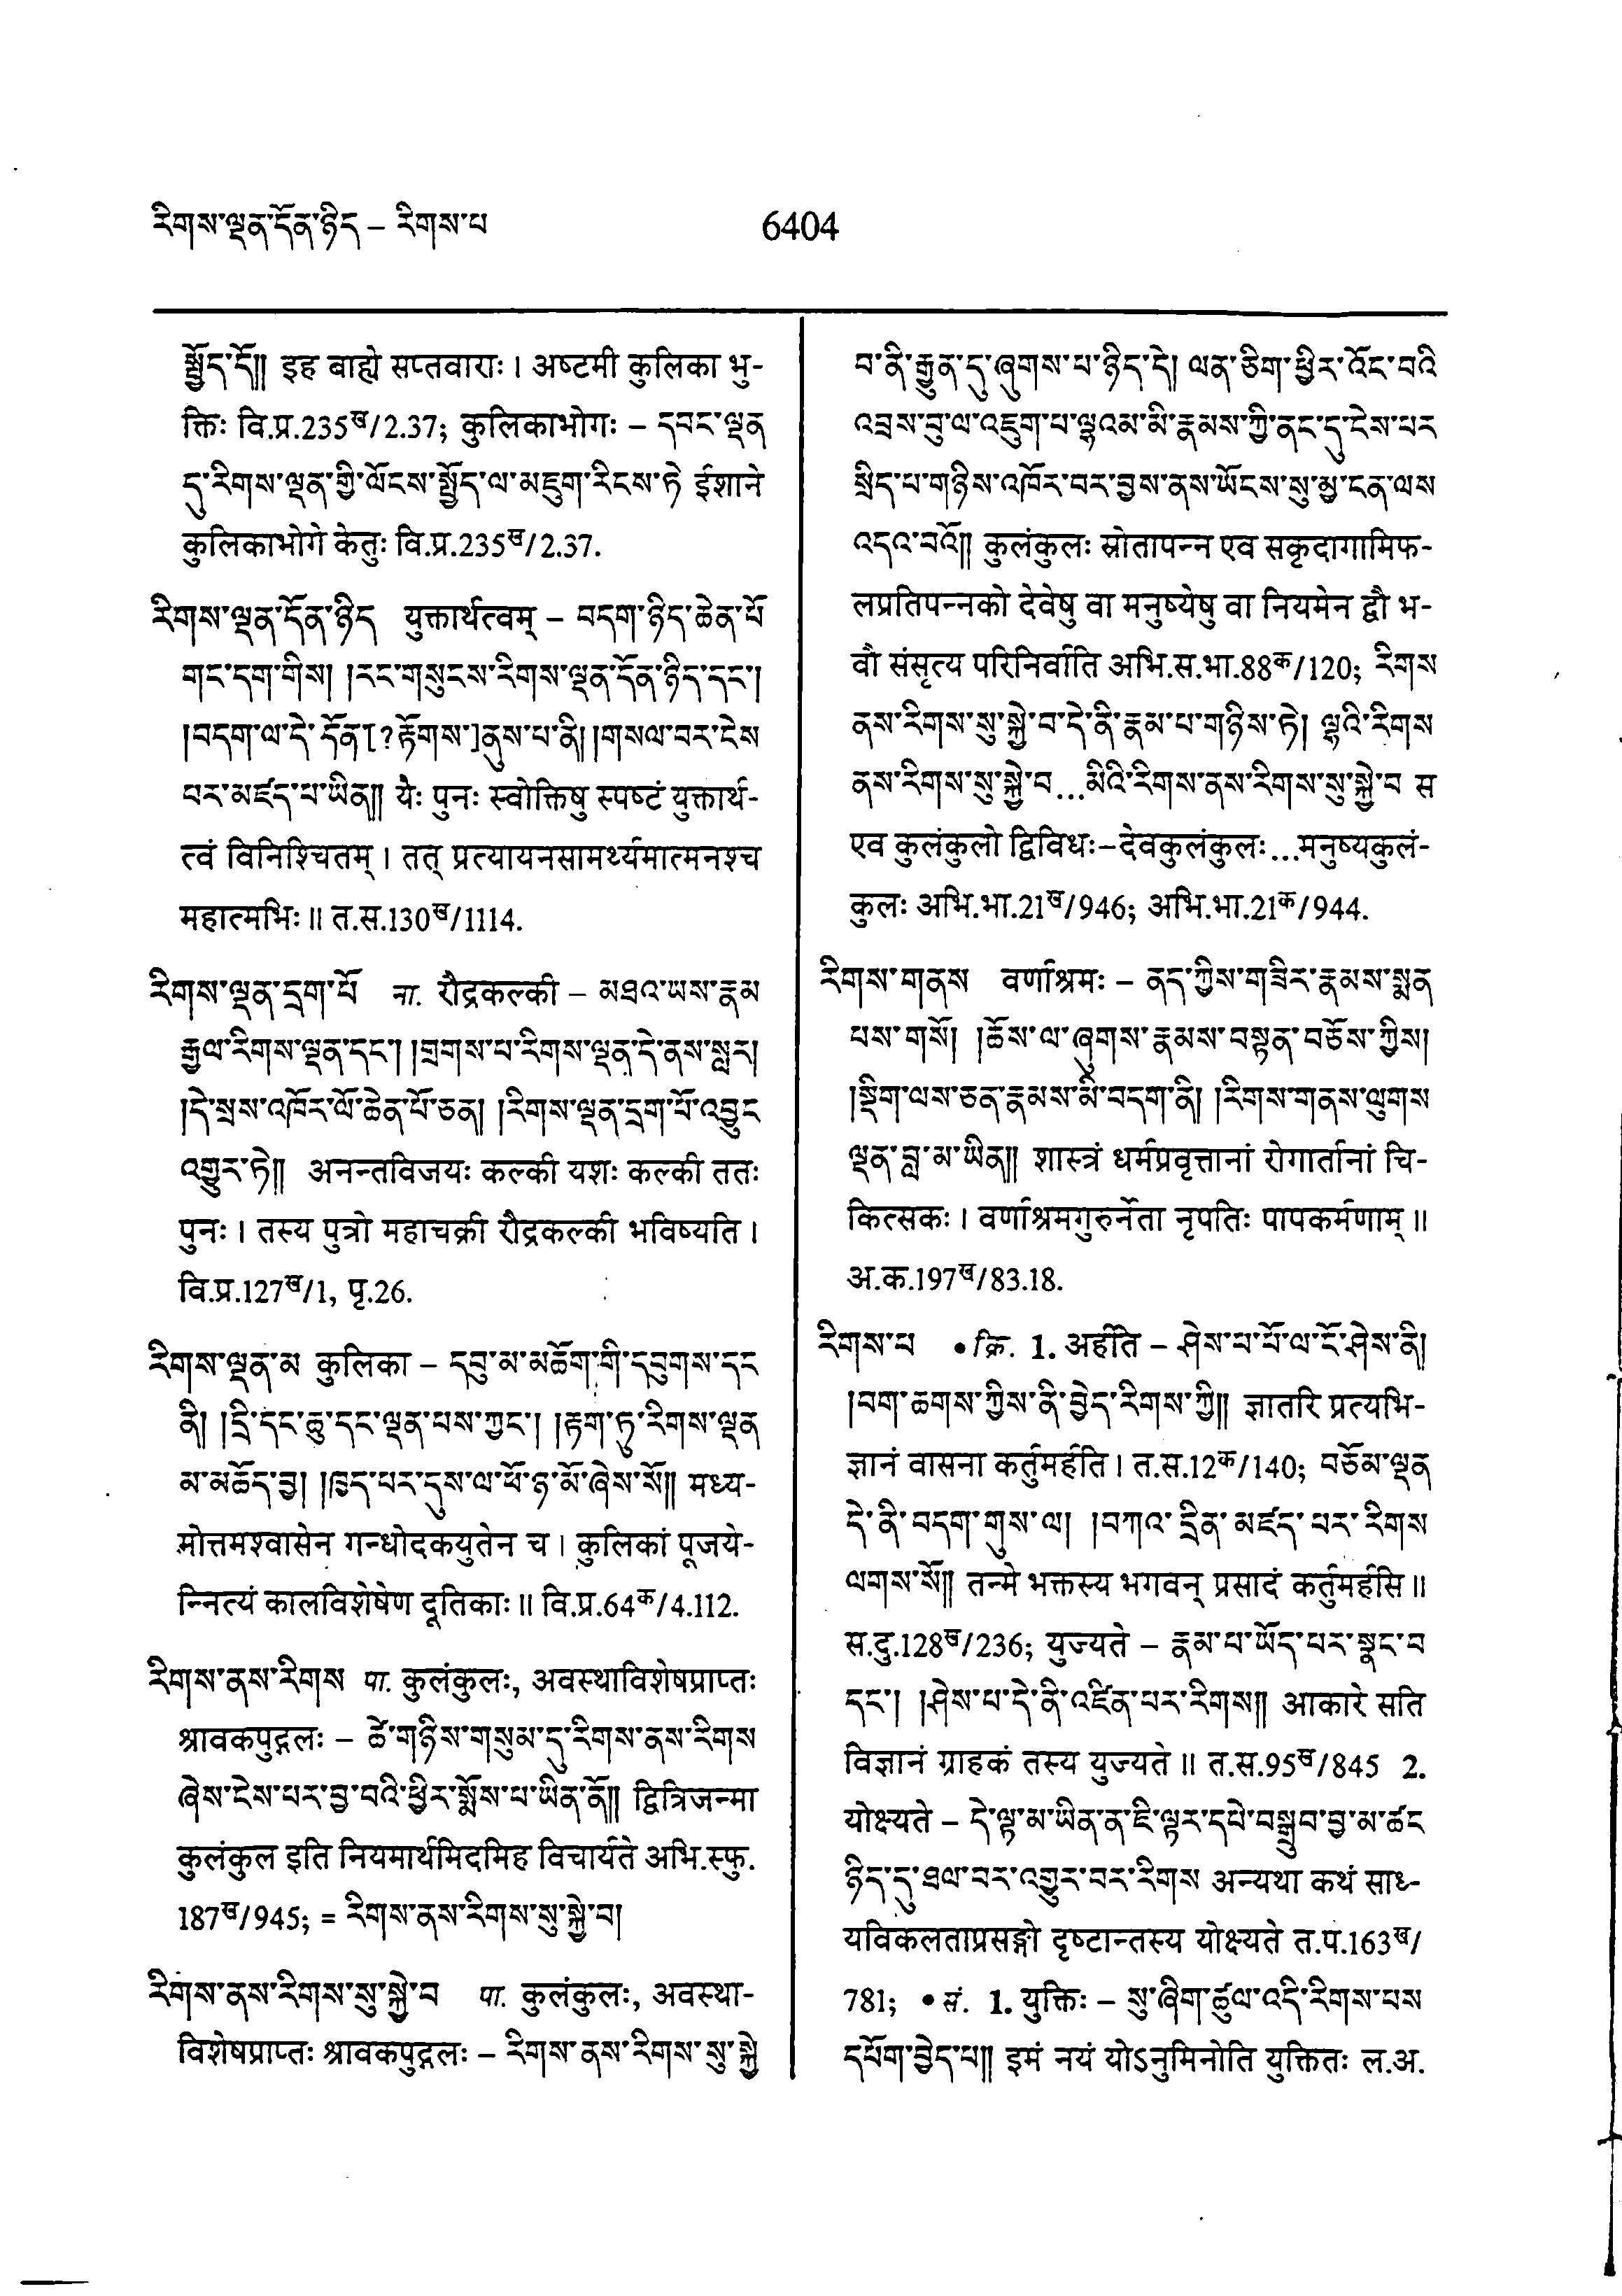 རིགས་ལྡན་དོན་ཉིད – རིགས་པ
6404
སྤྱོད་དོ།། इह बाह्ये सप्तवाराः । अष्टमी कुलिका भु-
क्तिः वि.प्र.235ख/2.37; कुलिकाभोगः – དབང་ལྡན
དུ་རིགས་ལྡན་གྱི་ལོངས་སྤྱོད་ལ་མཇུག་རིངས་ཏེ ईशाने
कुलिकाभोगे केतुः वि.प्र.235ख/2.37.
རིགས་ལྡན་དོན་ཉིད युक्तार्थत्वम् – བདག་ཉིད་ཆེན་པོ
གང་དག་གིས། །རང་གསུངས་རིགས་ལྡན་དོན་ཉིད་དང་།
།བདག་ལ་དེ་དོན་[?རྟོགས་]ནུས་པ་ནི། །གསལ་བར་ངེས
པར་མཛད་པ་ཡིན།། यैः पुनः स्वोक्तिषु स्पष्टं युक्तार्थ-
त्वं विनिश्चितम् । तत् प्रत्यायनसामर्थ्यमात्मनश्च
महात्मभिः ॥ त.स.130ख/1114.
རིགས་ལྡན་དྲག་པོ ना. रौद्रकल्की – མཐའ་ཡས་རྣམ
རྒྱལ་རིགས་ལྡན་དང་། །གྲགས་པ་རིགས་ལྡན་དེ་ནས་སླར།
།དེ་སྲས་འཁོར་ལོ་ཆེན་པོ་ཅན། །རིགས་ལྡན་དྲག་པོ་འབྱུང
འགྱུར་ཏེ།། अनन्तविजयः कल्की यशः कल्की ततः
पुनः । तस्य पुत्रो महाचक्री रौद्रकल्की भविष्यति ।
वि.प्र.127ख/1, पृ.26.
རིགས་ལྡན་མ कुलिका – དབུ་མ་མཆོག་གི་དབུགས་དང
ནི། །དྲི་དང་ཆུ་དང་ལྡན་པས་ཀྱང་། །རྟག་ཏུ་རིགས་ལྡན
མ་མཆོད་བྱ། །ཁྱད་པར་དུས་ལ་ཕོ་ཉ་མོ་ཞེས་སོ།། मध्य-
मोत्तमश्वासेन गन्धोदकयुतेन च । कुलिकां पूजये-
न्नित्यं कालविशेषेण दूतिकाः ॥ वि.प्र.64क/4.112.
རིགས་ནས་རིགས पा. कुलंकुलः, अवस्थाविशेषप्राप्तः
श्रावकपुद्गलः – ཚེ་གཉིས་གསུམ་དུ་རིགས་ནས་རིགས
ཞེས་ངེས་པར་བྱ་བའི་ཕྱིར་སྨོས་པ་ཡིན་ནོ།། द्वित्रिजन्मा
कुलंकुल इति नियमार्थमिदमिह विचार्यते अभि.स्फु.
187ख/945; = རིགས་ནས་རིགས་སུ་སྐྱེ་བ།
རིགས་ནས་རིགས་སུ་སྐྱེ་བ पा. कुलंकुलः, अवस्था-
विशेषप्राप्तः श्रावकपुद्गलः – རིགས་ནས་རིགས་སུ་སྐྱེ
བ་ནི་རྒྱུན་དུ་ཞུགས་པ་ཉིད་དེ། ལན་ཅིག་ཕྱིར་འོང་བའི
འབྲས་བུ་ལ་འཇུག་པ་ལྷའམ་མི་རྣམས་ཀྱི་ནང་དུ་ངེས་པར
སྲིད་པ་གཉིས་འཁོར་བར་བྱས་ནས་ཡོངས་སུ་མྱ་ངན་ལས
འདའ་བའོ།། कुलंकुलः स्रोतापन्न एव सकृदागामिफ-
लप्रतिपन्नको देवेषु वा मनुष्येषु वा नियमेन द्वौ भ-
वौ संसृत्य परिनिर्वाति अभि.स.भा.88क/120; རིགས
ནས་རིགས་སུ་སྐྱེ་བ་དེ་ནི་རྣམ་པ་གཉིས་ཏེ། ལྷའི་རིགས
ནས་རིགས་སུ་སྐྱེ་བ...མིའི་རིགས་ནས་རིགས་སུ་སྐྱེ་བ स
एव कुलंकुलो द्विविधः–देवकुलंकुलः...मनुष्यकुलं-
कुलः अभि.भा.21ख/946; अभि.भा.21क/944.
རིགས་གནས वर्णाश्रमः – ནད་ཀྱིས་གཟིར་རྣམས་སྨན
པས་གསོ། །ཆོས་ལ་ཞུགས་རྣམས་བསྟན་བཅོས་ཀྱིས།
།སྡིག་ལས་ཅན་རྣམས་མི་བདག་ནི། །རིགས་གནས་ལུགས
ལྡན་བླ་མ་ཡིན།། शास्त्रं धर्मप्रवृत्तानां रोगार्तानां चि-
कित्सकः । वर्णाश्रमगुरुर्नेता नृपतिः पापकर्मणाम् ॥
अ.क.197ख/83.18.
རིགས་པ • क्रि. 1. अर्हति – ཤེས་པ་པོ་ལ་ངོ་ཤེས་ནི།
།བག་ཆགས་ཀྱིས་ནི་བྱེད་རིགས་ཀྱི།། ज्ञातरि प्रत्यभि-
ज्ञानं वासना कर्तुमर्हति । त.स.12क/140; བཅོམ་ལྡན
དེ་ནི་བདག་གུས་ལ། །བཀའ་དྲིན་མཛད་པར་རིགས
ལགས་སོ།། तन्मे भक्तस्य भगवन् प्रसादं कर्तुमर्हसि ॥
स.दु.128ख/236; युज्यते – རྣམ་པ་ཡོད་པར་སྣང་བ
དང་། །ཤེས་པ་དེ་ནི་འཛིན་པར་རིགས།། आकारे सति
विज्ञानं ग्राहकं तस्य युज्यते ॥ त.स.95ख/845 2.
योक्ष्यते – དེ་ལྟ་མ་ཡིན་ན་ཇི་ལྟར་དཔེ་བསྒྲུབ་བྱ་མ་ཚང
ཉིད་དུ་ཐལ་བར་འགྱུར་བར་རིགས अन्यथा कथं साध्-
यविकलताप्रसङ्गो दृष्टान्तस्य योक्ष्यते त.प.163ख/
781; • सं. 1. युक्तिः – སུ་ཞིག་ཚུལ་འདི་རིགས་པས
དཔོག་བྱེད་པ།། इमं नयं योऽनुमिनोति युक्तितः ल.अ.